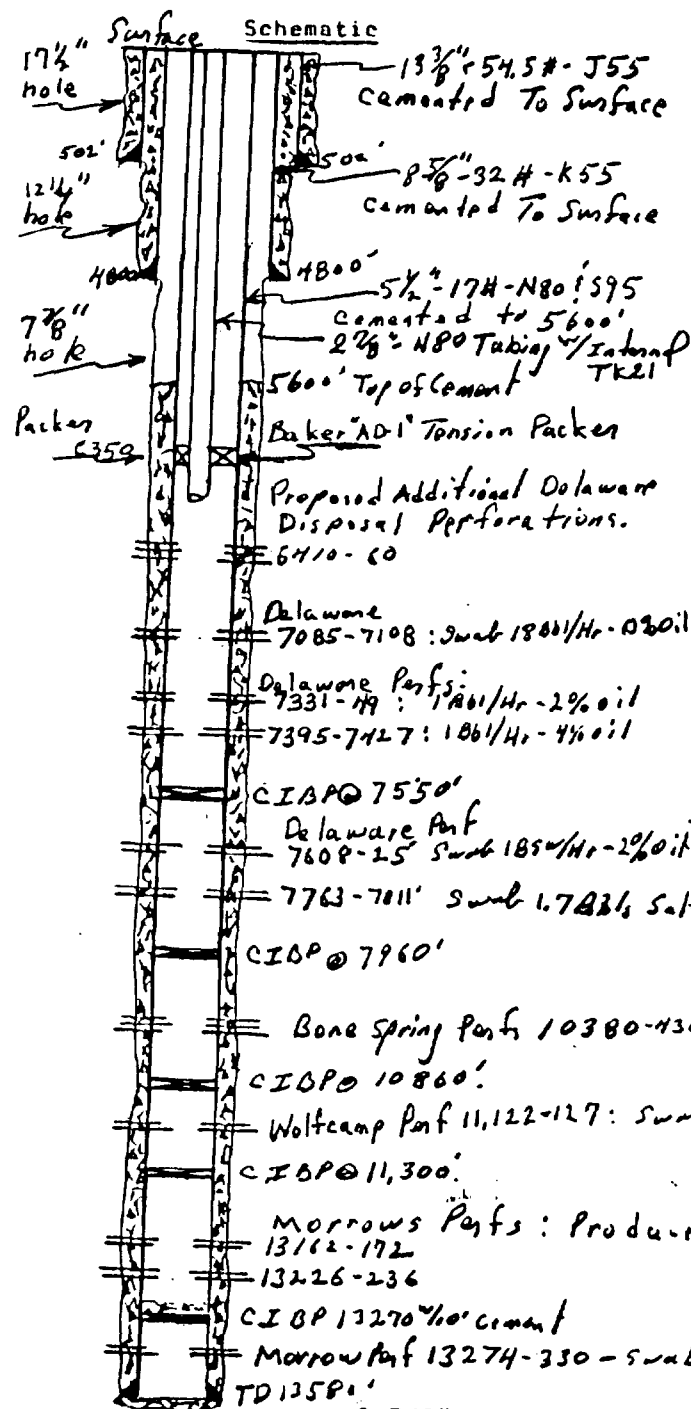 Surface Schematic
17 1/2"
hole
13 3/8" 54.5# - J55
cemented To Surface
502'
502'
8 5/8" - 32# - K55
cemented To Surface
12 1/4"
hole
4800'
4800'
5 1/2" - 17# - N80 & S95
cemented to 5600'
2 7/8" N80 Tubing w/ Internal
TK21
7 7/8"
hole
5600' Top of Cement
Packer
6350
Baker "AD-1" Tension Packer
Proposed Additional Delaware
Disposal Perforations.
6410-60
Delaware
7085-7108: Swab 18 Bbl/Hr -
Delaware Perfs:
7331-49: 1 Bbl/Hr - 2% oil
7395-7427: 1 Bbl/Hr - 4% oil
CIBP @ 7550'
Delaware Perf
7608-25' Swab /Hr - 2% oil
7763-7811' Swab 1.7
CIBP @ 7960'
Bone Spring Perfs 10380-430
CIBP @ 10860'
Wolfcamp Perf 11,122-127:
CIBP @ 11,300'
Morrows Perfs:
13162-172
13226-236
CIBP 13270 w/10' cement
Morrow Perf 13274-330 - Swab
TD 13580'